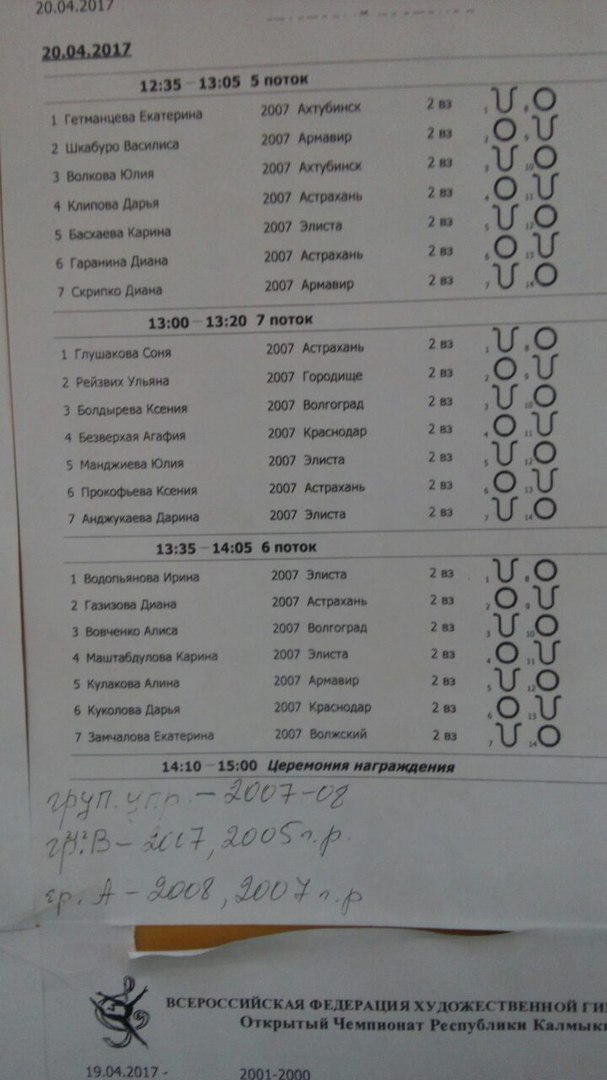 20.04.2017
20.04.2017
12:35 – 13:05 5 поток
1 Гетманцева Екатерина 2007 Ахтубинск 2 вз 1 8
2 Шкабуро Василиса 2007 Армавир 2 вз 2 9
3 Волкова Юлия 2007 Ахтубинск 2 вз 3 10
4 Клипова Дарья 2007 Астрахань 2 вз 4 11
5 Басхаева Карина 2007 Элиста 2 вз 5 12
6 Гаранина Диана 2007 Астрахань 2 вз 6 13
7 Скрипко Диана 2007 Армавир 2 вз 7 14
13:00 – 13:20 7 поток
1 Глушакова Соня 2007 Астрахань 2 вз 1 8
2 Рейзвих Ульяна 2007 Городище 2 вз 2 9
3 Болдырева Ксения 2007 Волгоград 2 вз 3 10
4 Безверхая Агафия 2007 Краснодар 2 вз 4 11
5 Манджиева Юлия 2007 Элиста 2 вз 5 12
6 Прокофьева Ксения 2007 Астрахань 2 вз 6 13
7 Анджукаева Дарина 2007 Элиста 2 вз 7 14
13:35 – 14:05 6 поток
1 Водопьянова Ирина 2007 Элиста 2 вз 1 8
2 Газизова Диана 2007 Астрахань 2 вз 2 9
3 Вовченко Алиса 2007 Волгоград 2 вз 3 10
4 Маштабдулова Карина 2007 Элиста 2 вз 4 11
5 Кулакова Алина 2007 Армавир 2 вз 5 12
6 Куколова Дарья 2007 Краснодар 2 вз 6 13
7 Замчалова Екатерина 2007 Волжский 2 вз 7 14
14:10 – 15:00 Церемония награждения
груп. упр. – 2007-08
гр. В – 2007, 2005 г.р.
гр. А – 2008, 2007 г.р
ВСЕРОССИЙСКАЯ ФЕДЕРАЦИЯ ХУДОЖЕСТВЕННОЙ ГИ
Открытый Чемпионат Республики Калмык
19.04.2017 - 2001-2000